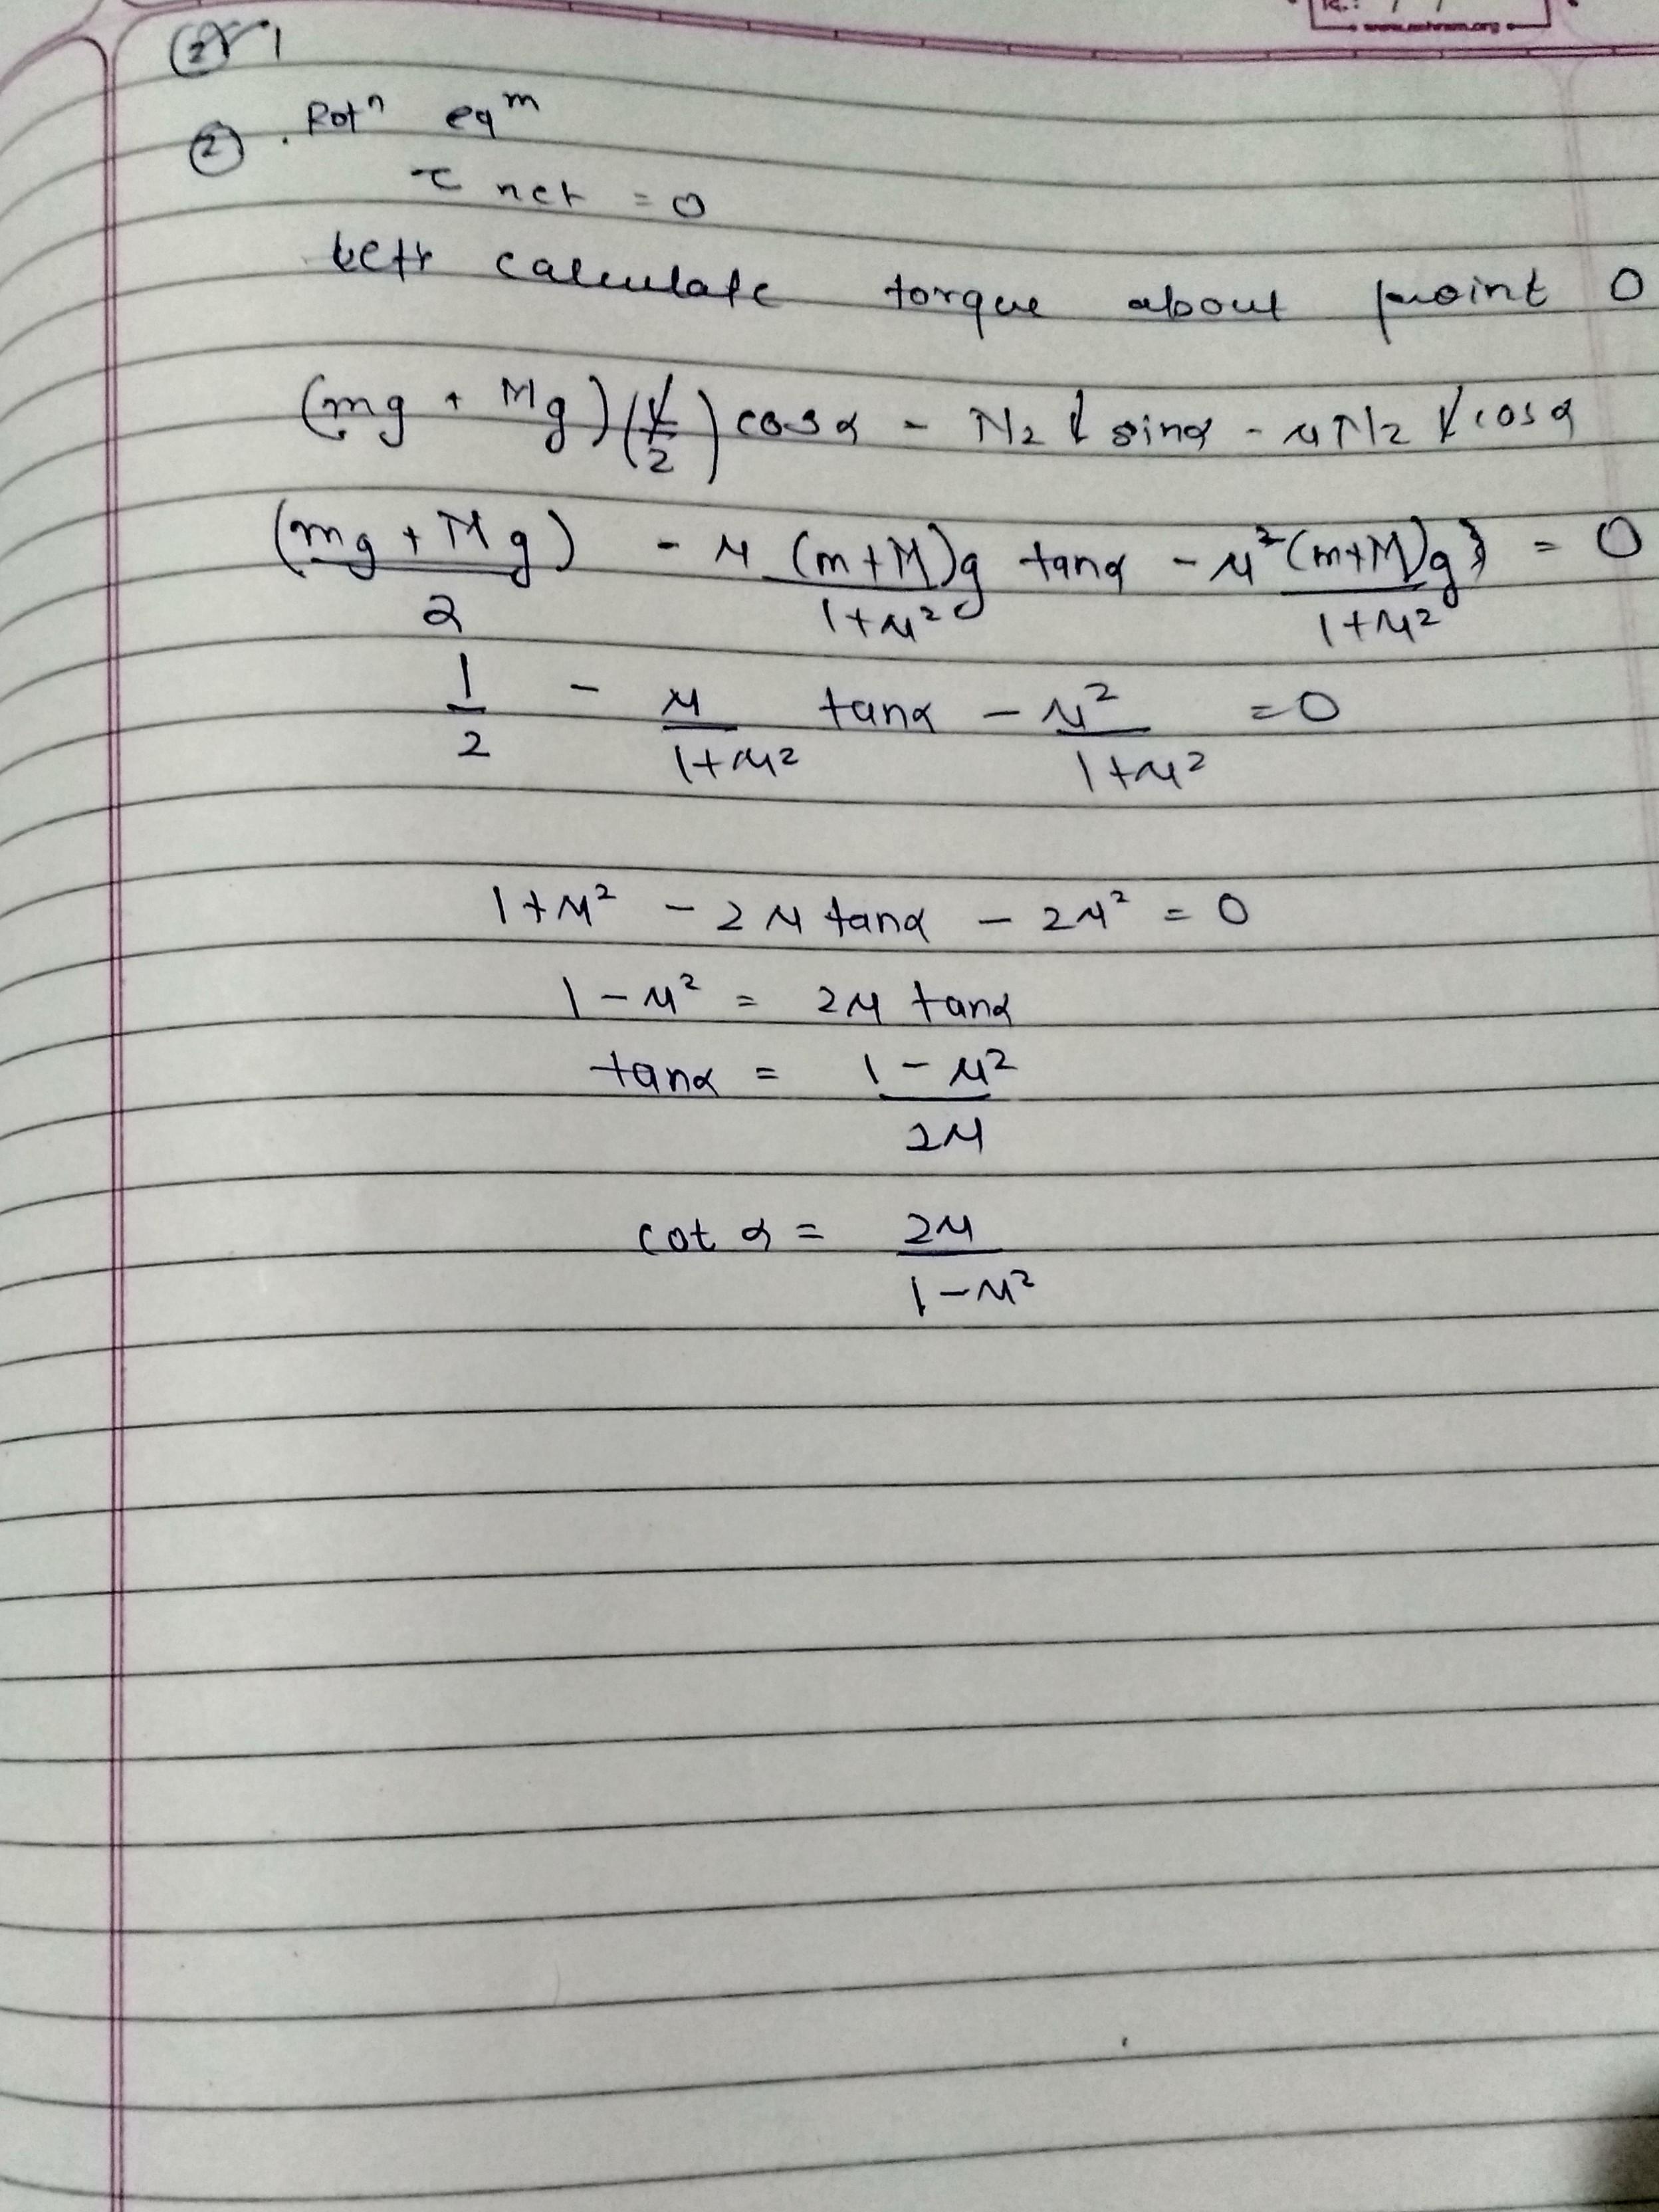 ② 1
② . Rotⁿ eqᵐ
τ net = 0
calculate torque about point O
(mg + Mg) (l/2) cosα - N₂ l sinα - μN₂ l cosα
(mg + Mg)/2 - μ (m+M)g/(1+μ²) tanα - μ² (m+M)g}/(1+μ²) = 0
1/2 - μ/(1+μ²) tanα - μ²/(1+μ²) = 0
1+μ² - 2μ tanα - 2μ² = 0
1-μ² = 2μ tanα
tanα = (1-μ²)/2μ
cot α = 2μ/(1-μ²)